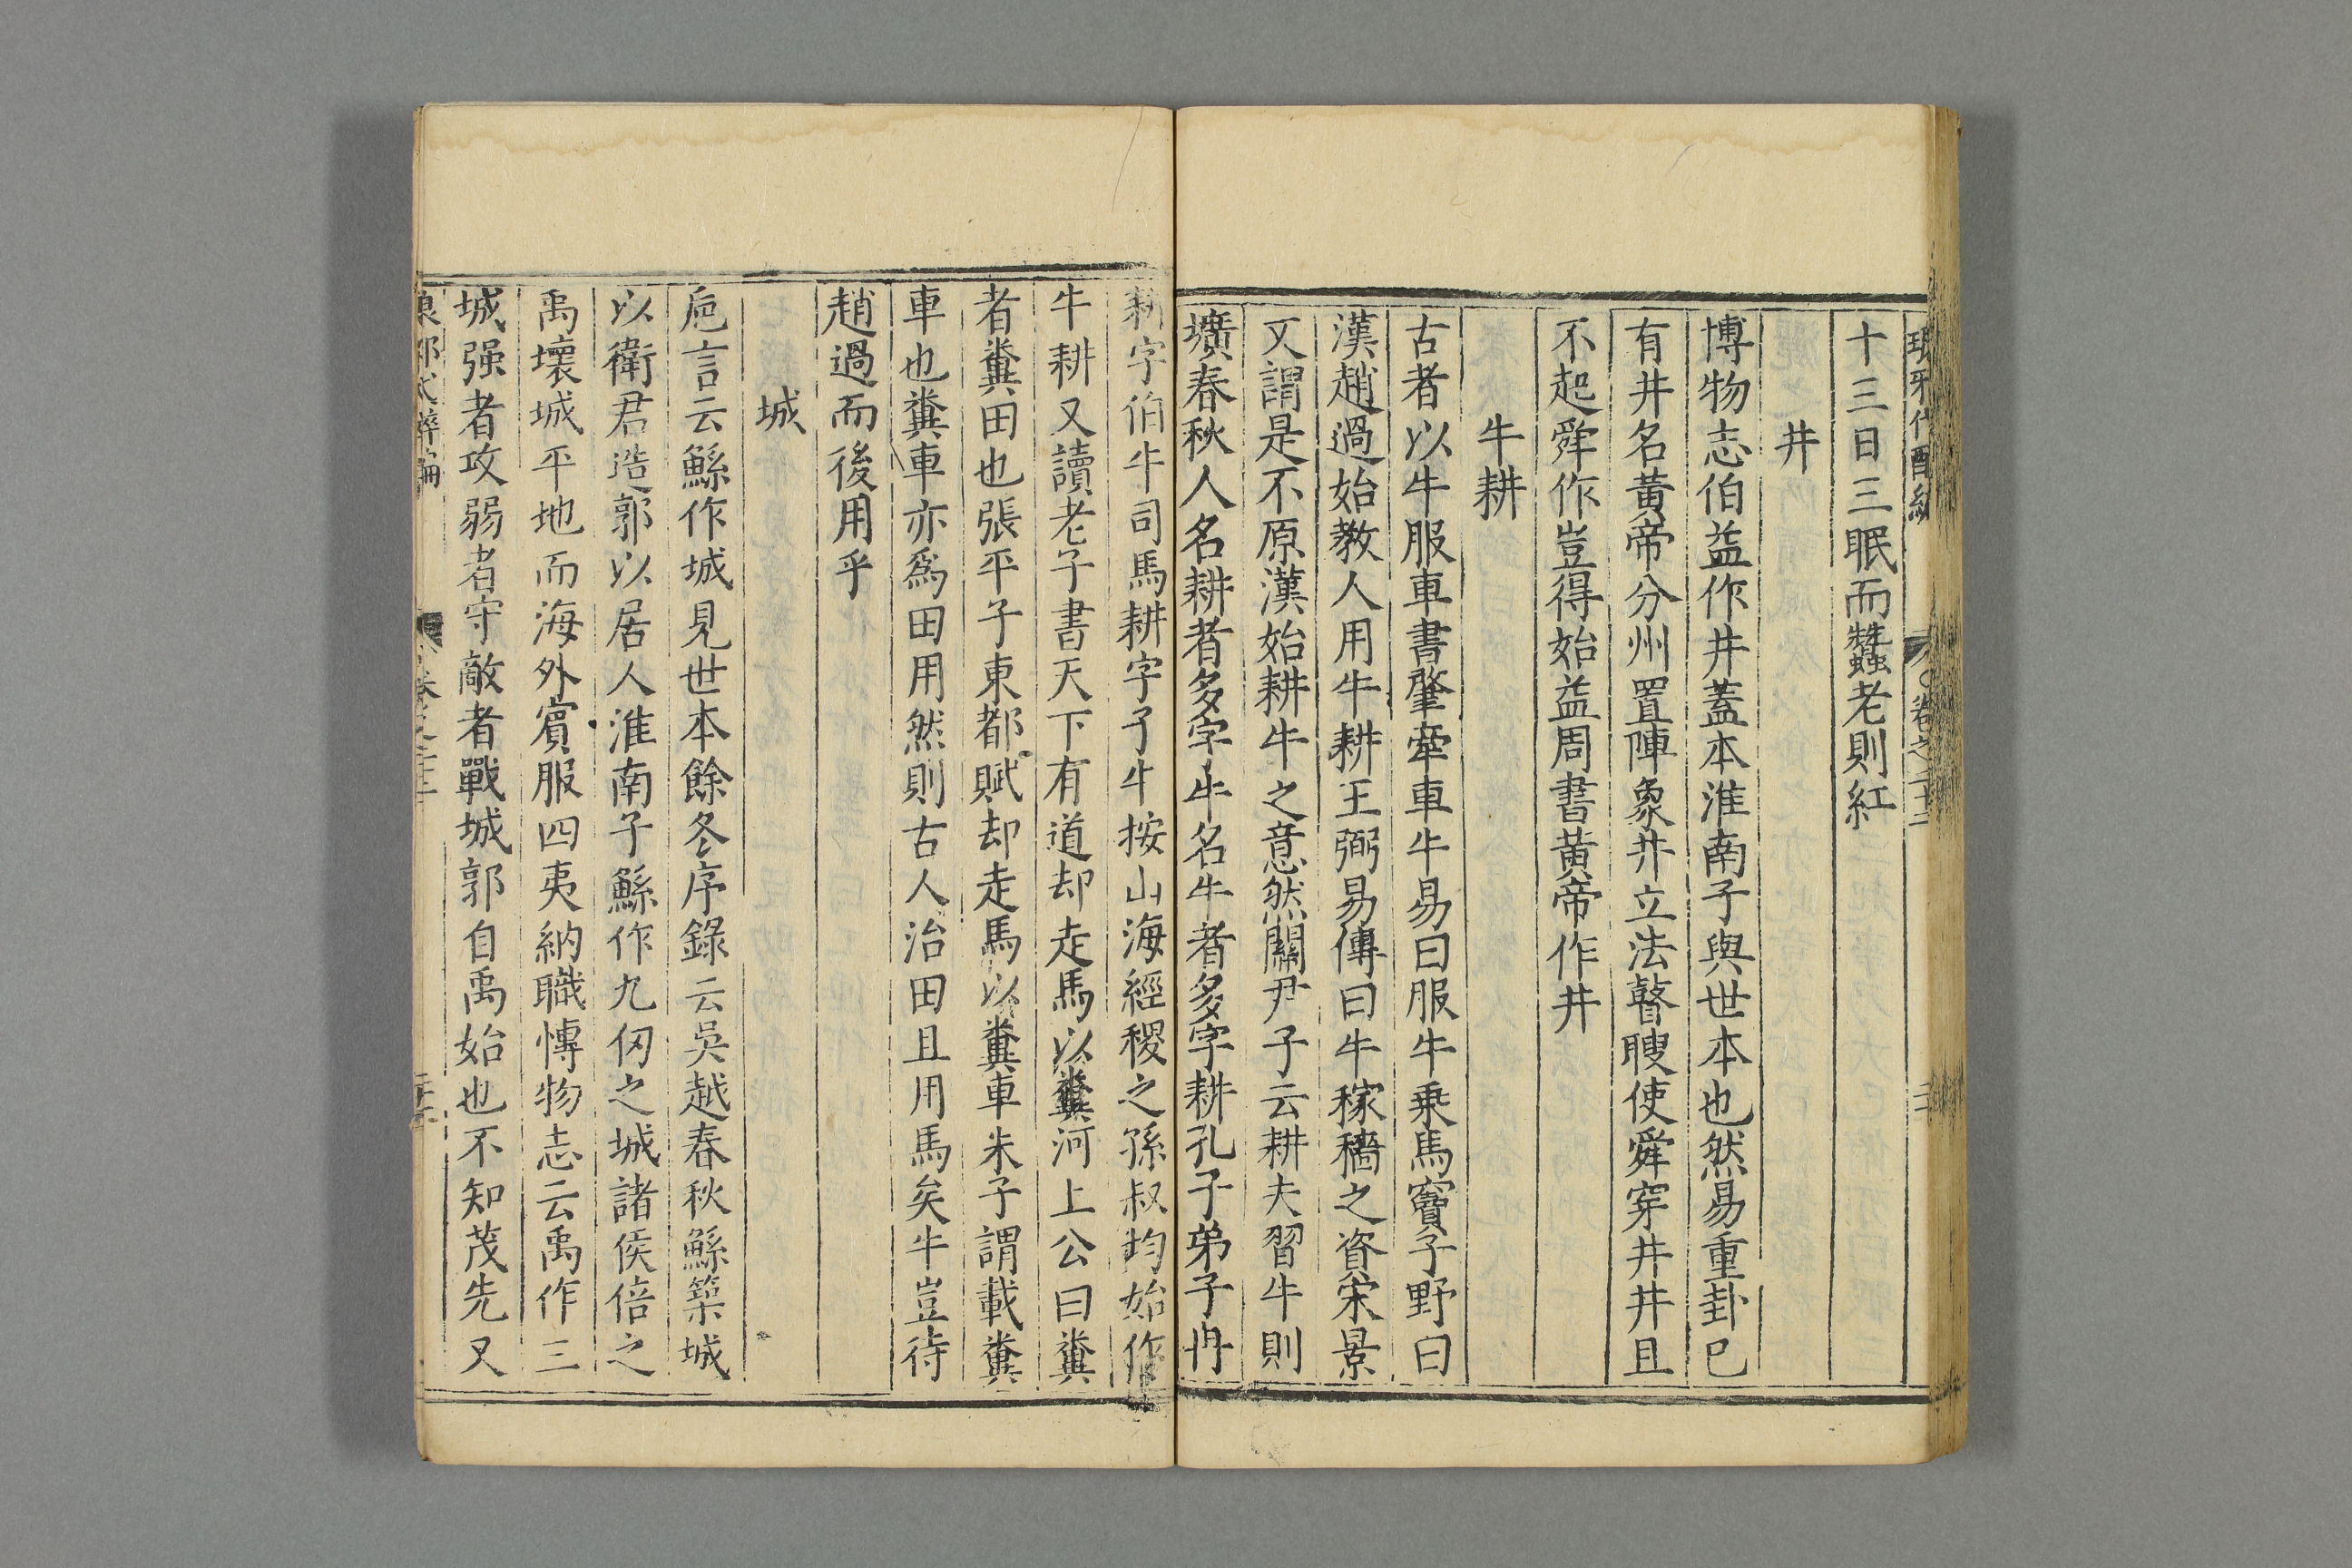 十三日三眠而蠶老則紅
井
博物志伯益作井蓋本淮南子與世本也然易重卦已
有井名黃帝分州置陣象井立法瞽瞍使舜穿井井且
不起舜作豈得始益周書黃帝作井
牛耕
古者以牛服車書肇牽車牛易曰服牛乗馬竇子野曰
漢趙過始教人用牛耕王弼易傳曰牛稼穡之資宋景
文謂是不原漢始耕牛之意然關尹子云耕夫習牛則
壙春秋人名耕者多字牛名牛者多字耕孔子弟子冉
耕字伯牛司馬耕字子牛按山海經稷之孫叔均始作
牛耕又讀老子書天下有道却走馬以糞河上公曰糞
者糞田也張平子東都賦却走馬以糞車朱子謂載糞
車也糞車亦爲田用然則古人治田且用馬矣牛豈待
趙過而後用乎
城
巵言云鯀作城見世本餘冬序錄云吳越春秋鯀築城
以衛君造郭以居人淮南子鯀作九仞之城諸侯倍之
禹壞城平地而海外賔服四夷納職慱物志云禹作三
城强者攻弱者守敵者戰城郭自禹始也不知茂先又